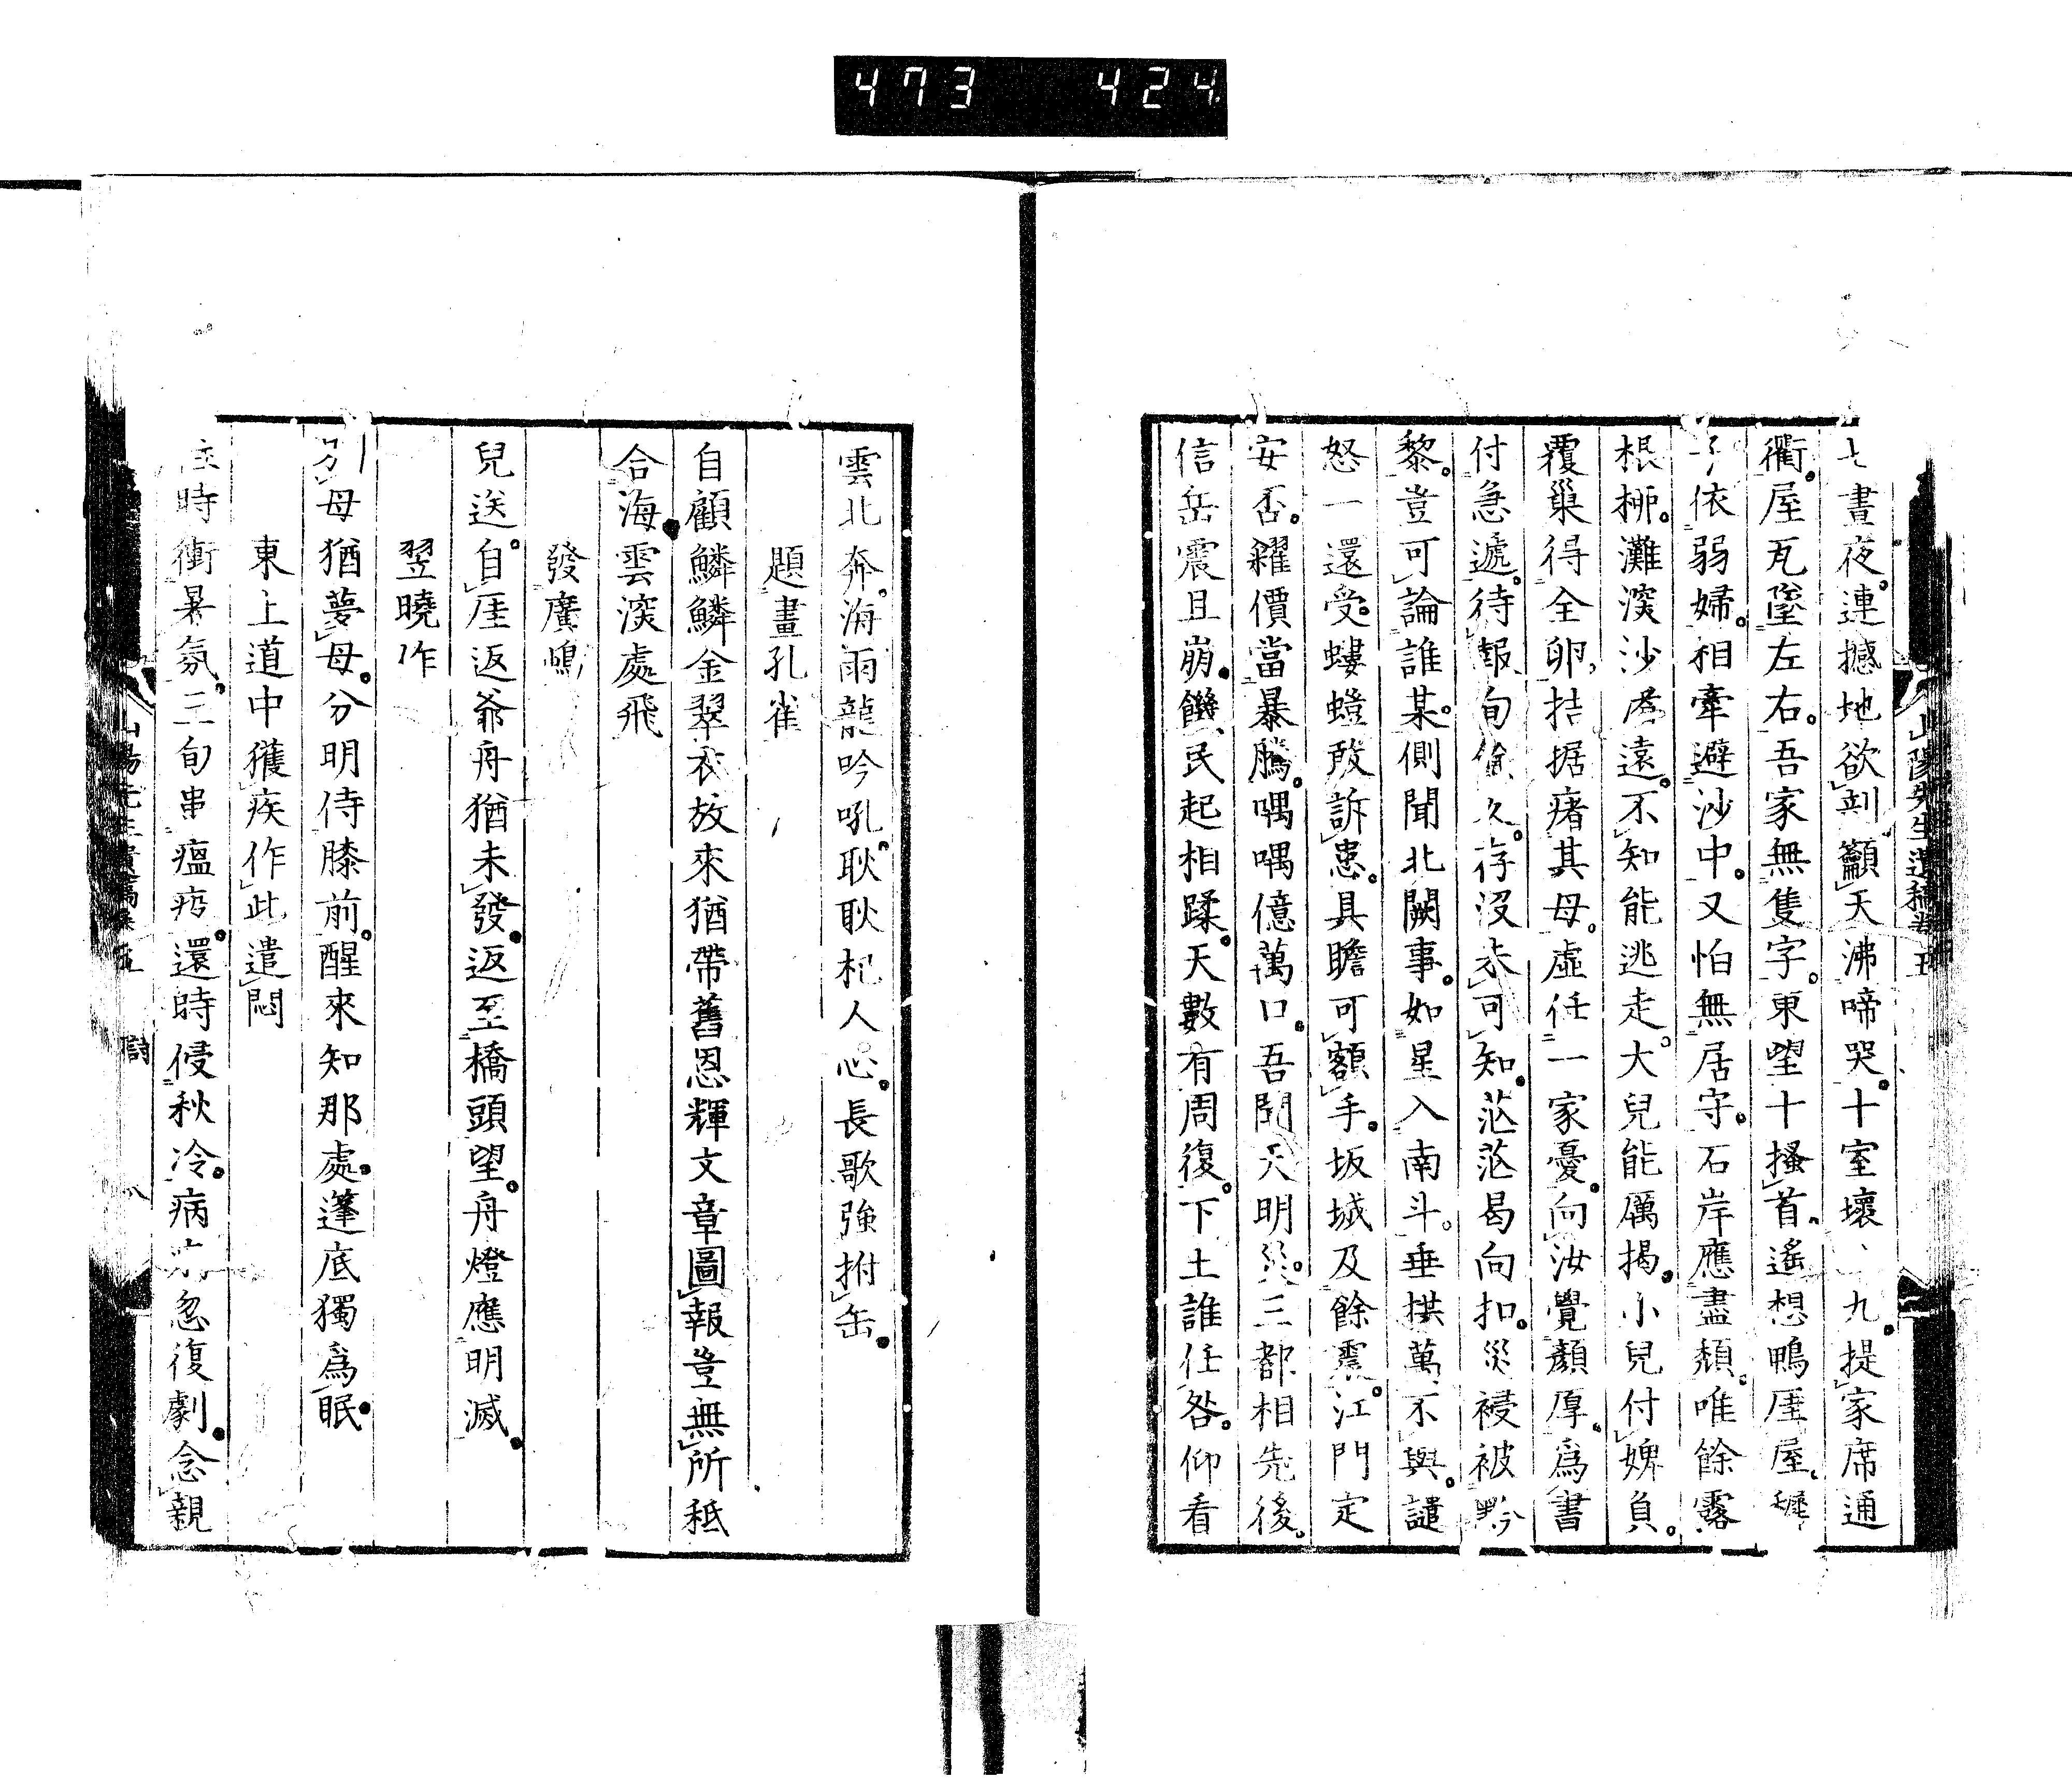 473 424
山陽先生遺稿卷五
七晝夜。連撼地欲剖。籲天沸啼哭。十室壞九。提家席通
衢。屋瓦墜左右。吾家無隻字。東望十搔首。遙想鴨厓屋。
依弱婦。相牽避沙中。又怕無居守。石岸應盡頹。唯餘露
根柳。灘深沙磧遠。不知能逃走。大兒能厲揭。小兒付婢負。
覆巢得全卵。拮据瘏其母。虛任一家憂。向汝覺顏厚。爲書
付急遞。待報旬餘久。存沒未可知。茫茫曷向扣。災祲被黔
黎。豈可論誰某。側聞北闕事。如星入南斗。垂拱萬不與。譴
怒一還受。螻螘敢訴患。具瞻可額手。坂城及餘震。江門定
安否。糴價當暴騰。喁喁億萬口。吾聞天明災。三都相先後。
信岳震且崩。饑民起相蹂。天數有周復。下土誰任咎。仰看
雲北奔。海雨龍吟吼。耿耿杞人心。長歌強拊缶。
題畫孔雀
自顧鱗鱗金翠衣放來猶帶舊恩輝文章圖報豈無所秪
合海雲深處飛
發廣嶋
兒送自厓返爺舟猶未發。返至橋頭望。舟燈應明滅。
翌曉作
別母猶夢母。分明侍膝前。醒來知那處。蓬底獨爲眠。
東上道中獲疾作此遣悶
時衝暑氛。三旬串瘟疠。還時侵秋冷。病忽復劇。念親
山陽先生遺稿卷五 詩 八